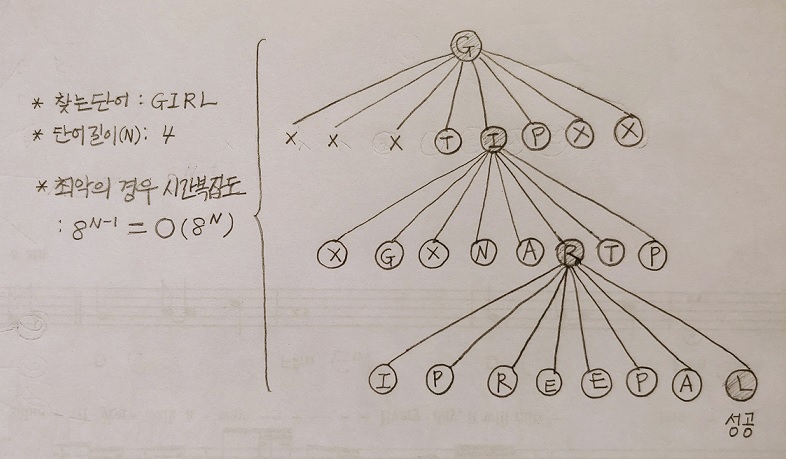 * 찾는단어 : GIRL
* 단어길이(N): 4
* 최악의 경우 시간복잡도
: 8ᴺ⁻¹ = O(8ᴺ)
G
X X X T I P X X
X G X N A R T P
I P R E E P A L
성공